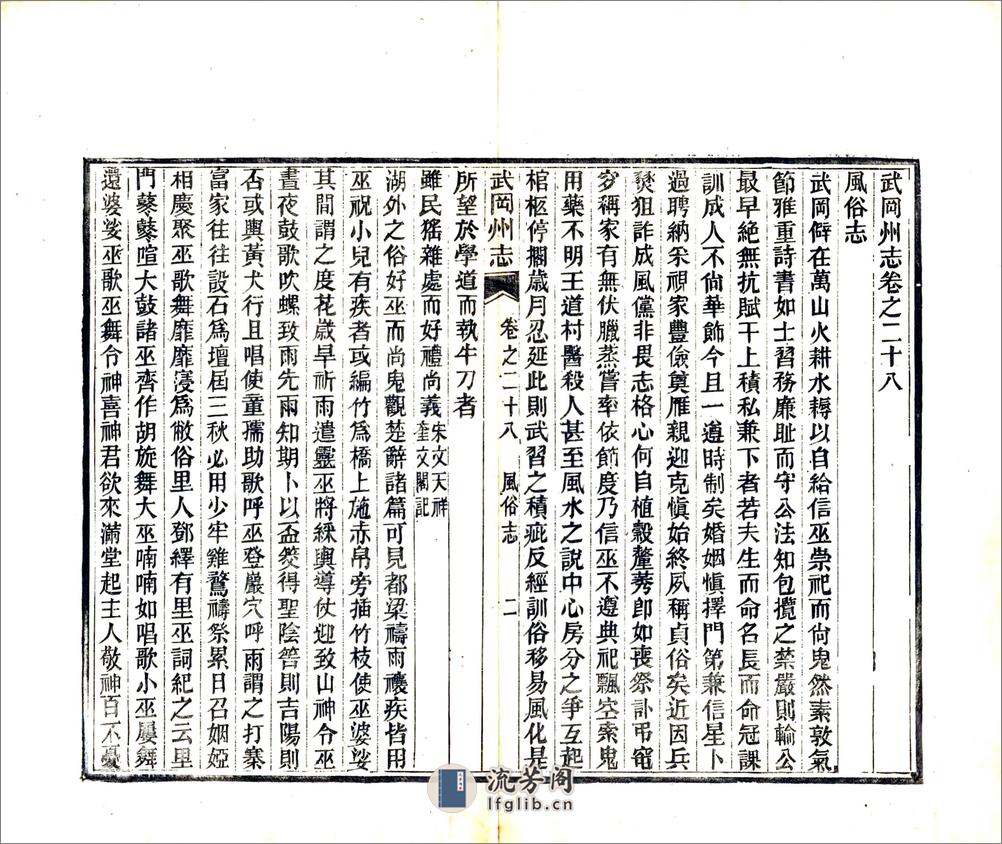 武岡州志卷之二十八
風俗志
武岡僻在萬山火耕水耨以自給信巫崇祀而尙鬼然素敦氣
節雅重詩書如士習務廉耻而守公法知包攬之禁嚴則輸公
最早絕無抗賦干上積私兼下者若夫生而命名長而命冠課
訓成人不尙華飾今且一遵時制矣婚姻愼擇門第兼信星卜
過聘納采視家豐儉奠雁親迎克愼始終夙稱貞俗矣近因兵
燹狙詐成風儻非畏志格心何自植穀釐莠卽如喪祭訃弔窀
穸稱家有無伏臘蒸嘗率依節度乃信巫不遵典祀飄空索鬼
用藥不明王道村醫殺人甚至風水之說中心房分之爭互起
棺柩停擱歲月忍延此則武習之積疵反經訓俗移易風化是
武岡州志 卷之二十八 風俗志 二
所望於學道而執牛刀者
雖民猺雜處而好禮尙義宋文天祥奎文閣記
湖外之俗好巫而尚鬼觀楚辭諸篇可見都梁禱雨禳疾皆用
巫祝小兒有疾者或編竹爲橋上施赤帛旁插竹枝使巫婆娑
其間謂之度花歲旱祈雨遣靈巫將綵輿導仗迎致山神令巫
晝夜鼓歌吹螺致雨先雨知期卜以盃筊得聖陰筶則吉陽則
否或輿黃犬行且唱使童孺助歌呼巫登巖穴呼雨謂之打寨
富家往往設石爲壇屆三秋必用少牢雞鶩禱祭累日召姻婭
相慶聚巫歌舞靡靡寖爲敝俗里人鄧繹有里巫詞紀之云里
門鼕鼕喧大鼓諸巫齊作胡旋舞大巫喃喃如唱歌小巫屢舞
還婆娑巫歌巫舞令神喜神君欲來滿堂起主人敬神百不憂
流芳阁
lfglib.cn